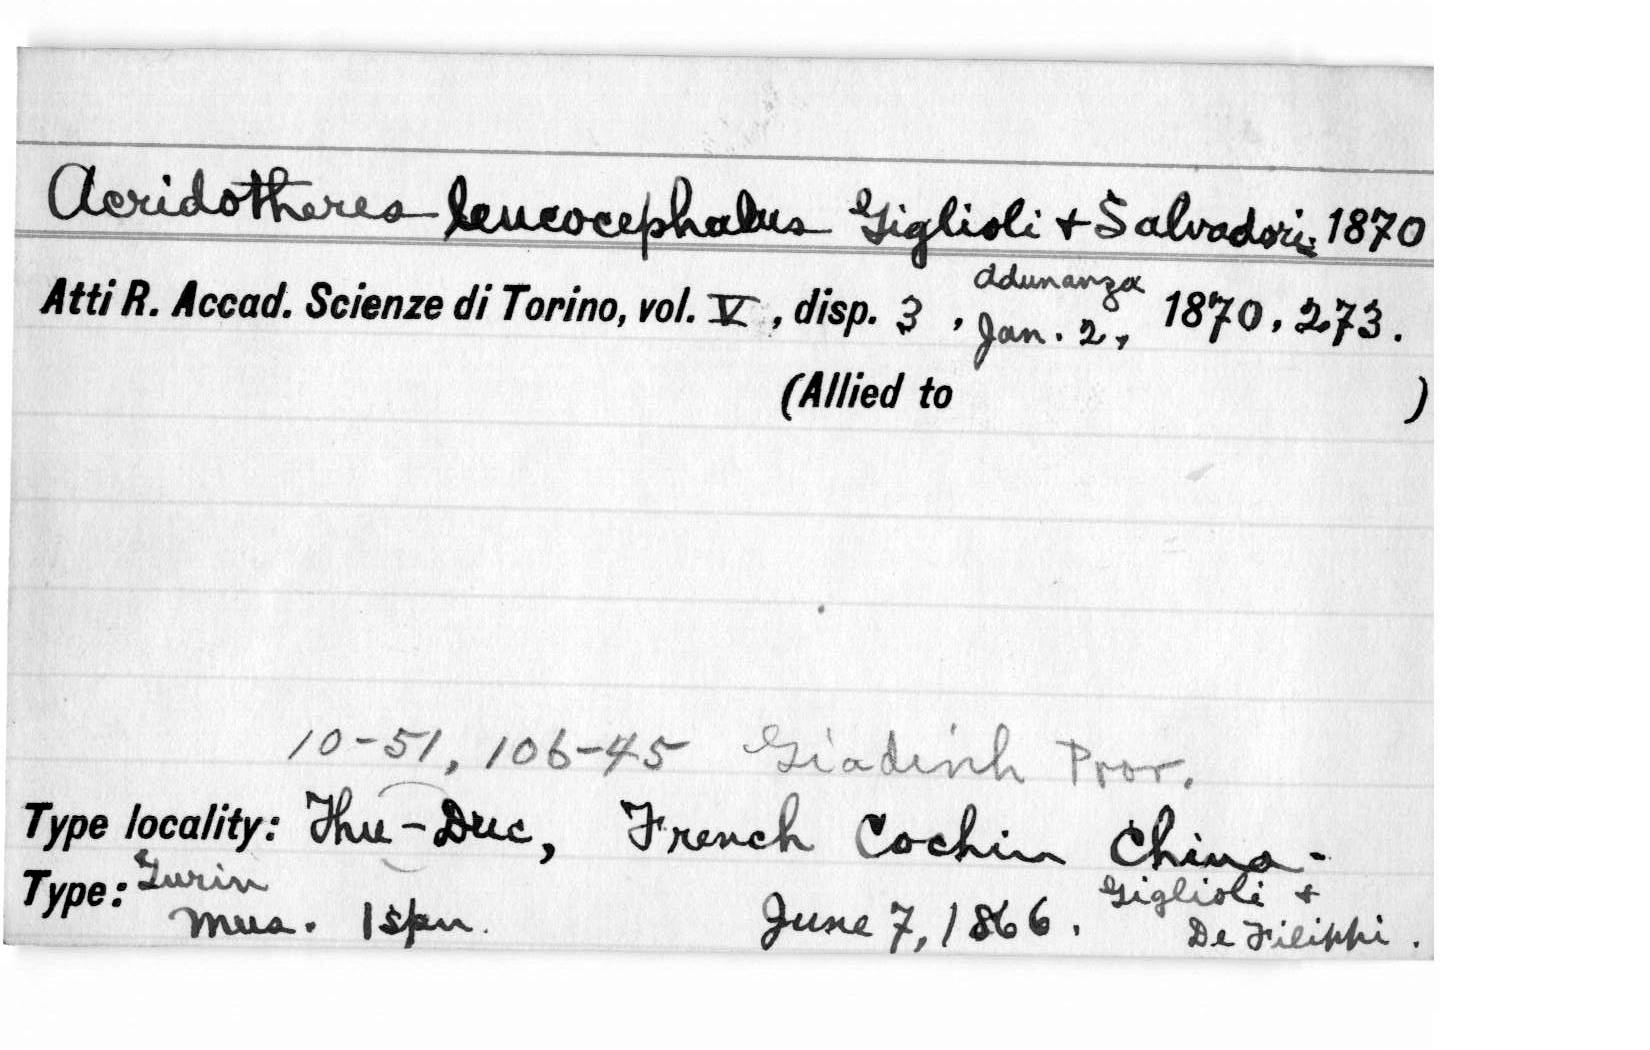 Acridotheres leucocephalus Giglioli + Salvadori, 1870
Atti R. Accad. Scienze di Torino, vol. V, disp. 3, adunanza Jan. 2, 1870, 273.
(Allied to )
10-51, 106-45 Giadinh Prov.
Type locality: Thu-Duc, French Cochin China-
Type: Turin Mus. 1 spm. June 7, 1866. Giglioli + De Filippi.